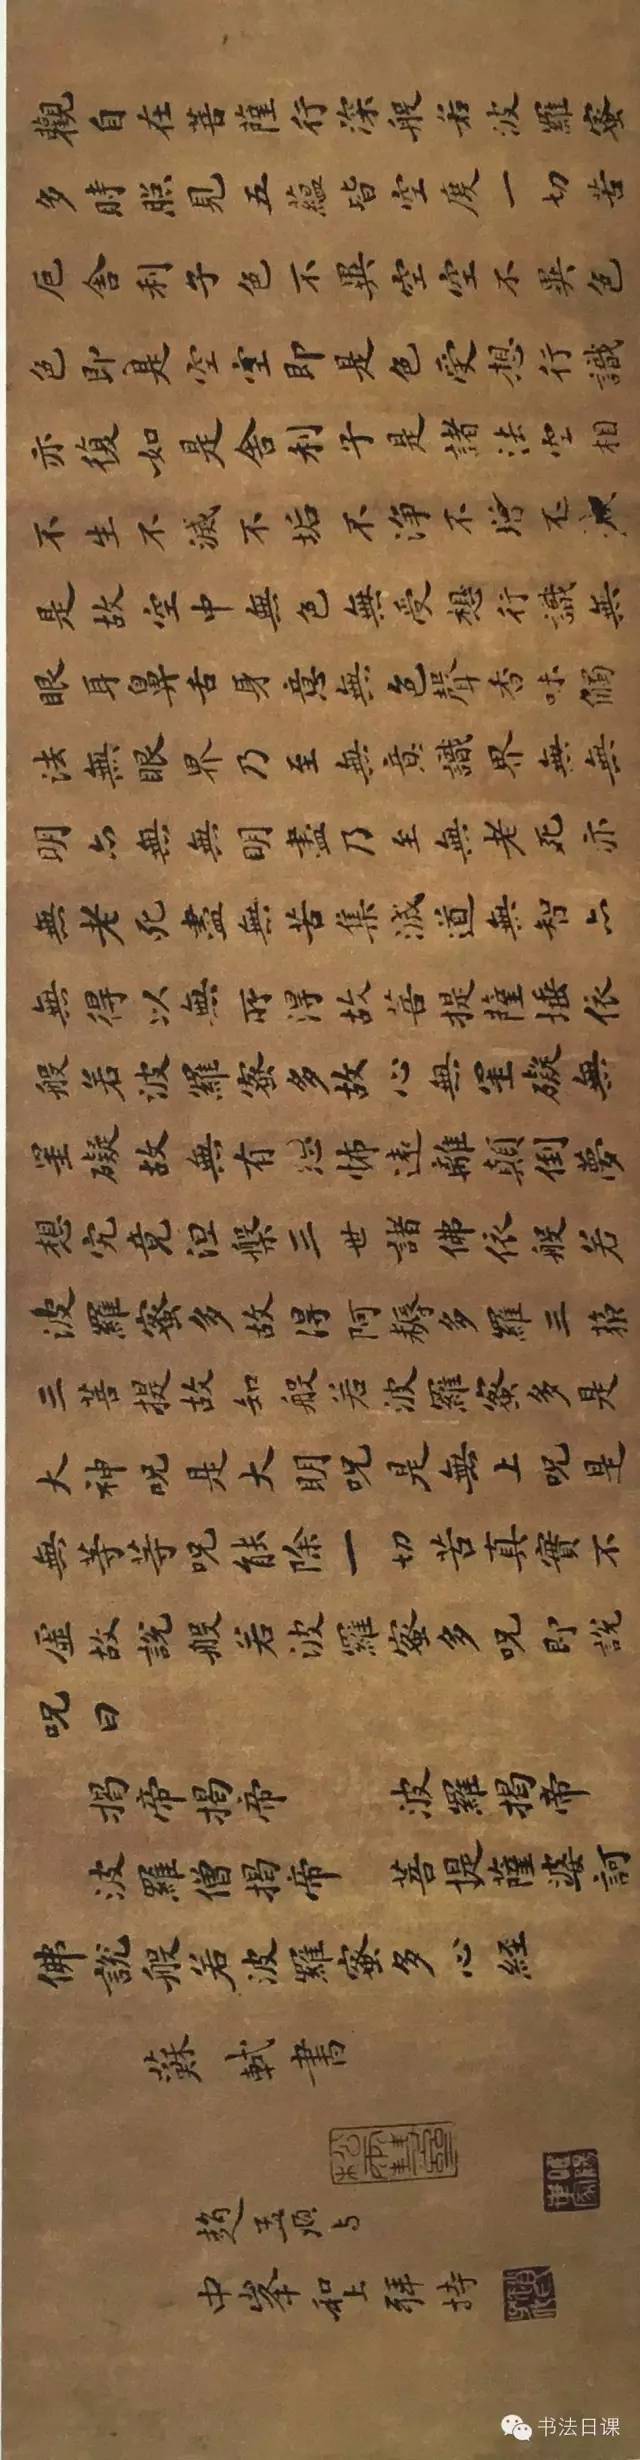 觀自在菩薩行深般若波羅蜜
多時照見五蘊皆空度一切苦
厄舍利子色不異空空不異色
色即是空空即是色受想行識
亦復如是舍利子是諸法空相
不生不滅不垢不淨不增不減
是故空中無色無受想行識無
眼耳鼻舌身意無色聲香味觸
法無眼界乃至無意識界無無
明亦無無明盡乃至無老死亦
無老死盡無苦集滅道無智亦
無得以無所得故菩提薩埵依
般若波羅蜜多故心無罣礙無
罣礙故無有恐怖遠離顛倒夢
想究竟涅槃三世諸佛依般若
波羅蜜多故得阿耨多羅三藐
三菩提故知般若波羅蜜多是
大神呪是大明呪是無上呪是
無等等呪能除一切苦真實不
虛故說般若波羅蜜多呪即說
呪曰
揭帝揭帝 波羅揭帝
波羅僧揭帝 菩提薩婆訶
佛說般若波羅蜜多心經
蘇軾書
松雪齋
趙孟頫与
中峯和上拜持
书法日课